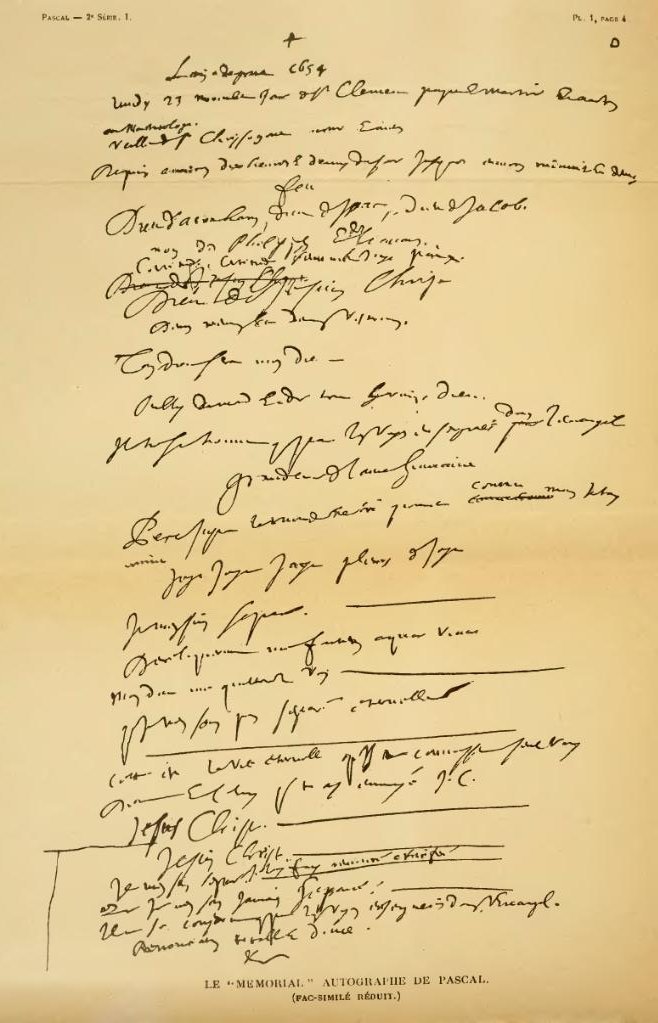 PASCAL — 2e SÉRIE. 1.
PL. 1, PAGE 4
D
L'an de grace 1654
Lundy 23 novembre jour de St Clement pape et martir et autres
au Martirologe.
veille de St Chrysogone martir et autres
Depuis environ dix heures et demy du soir jusques environ minuit et demy
feu
Dieu d'Abraham, Dieu d'Isaac, Dieu de Jacob.
non des Philosophes et des savans.
Certitude, certitude, sentiment, joye, paix.
Dieu de Jesus Christ
Dieu de Jesus Christ
Deum meum et Deum vestrum.
Ton Dieu sera mon Dieu —
Oubly du monde et de tout hormis Dieu.
Il ne se trouve que par les voyes enseignées dans l'Evangile
Grandeur de l'ame humaine
Pere juste le monde ne t'a point connu mais je t'ay
connu
Joye Joye Joye pleurs de joye
Je m'en suis separé.
Dereliquerunt me fontem aquae vivae
mon Dieu me quitterez vous
que je n'en sois pas separé eternellement
Cette est la vie eternelle qu'ils te connoissent seul vray
Dieu et celuy que tu as envoyé J.C.
Jesus Christ.
Jesus Christ.
Je m'en suis separé je l'ay fui renoncé crucifié
que je n'en sois jamais separé.
Il ne se conserve que par les voyes enseignées dans l'Evangile.
Renonciation totale et douce.
LE "MEMORIAL" AUTOGRAPHE DE PASCAL.
(FAC-SIMILÉ RÉDUIT.)